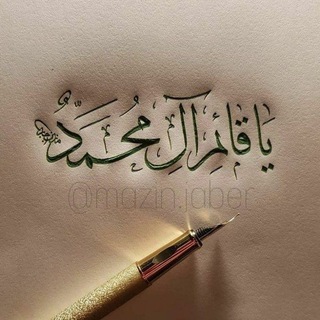 يَا قَائِمَ آلِ مُحَمَّدٍ
@mazin.jaber